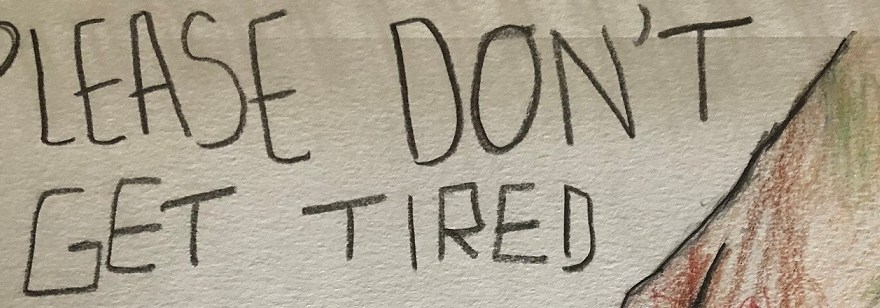 PLEASE DON'T
GET TIRED